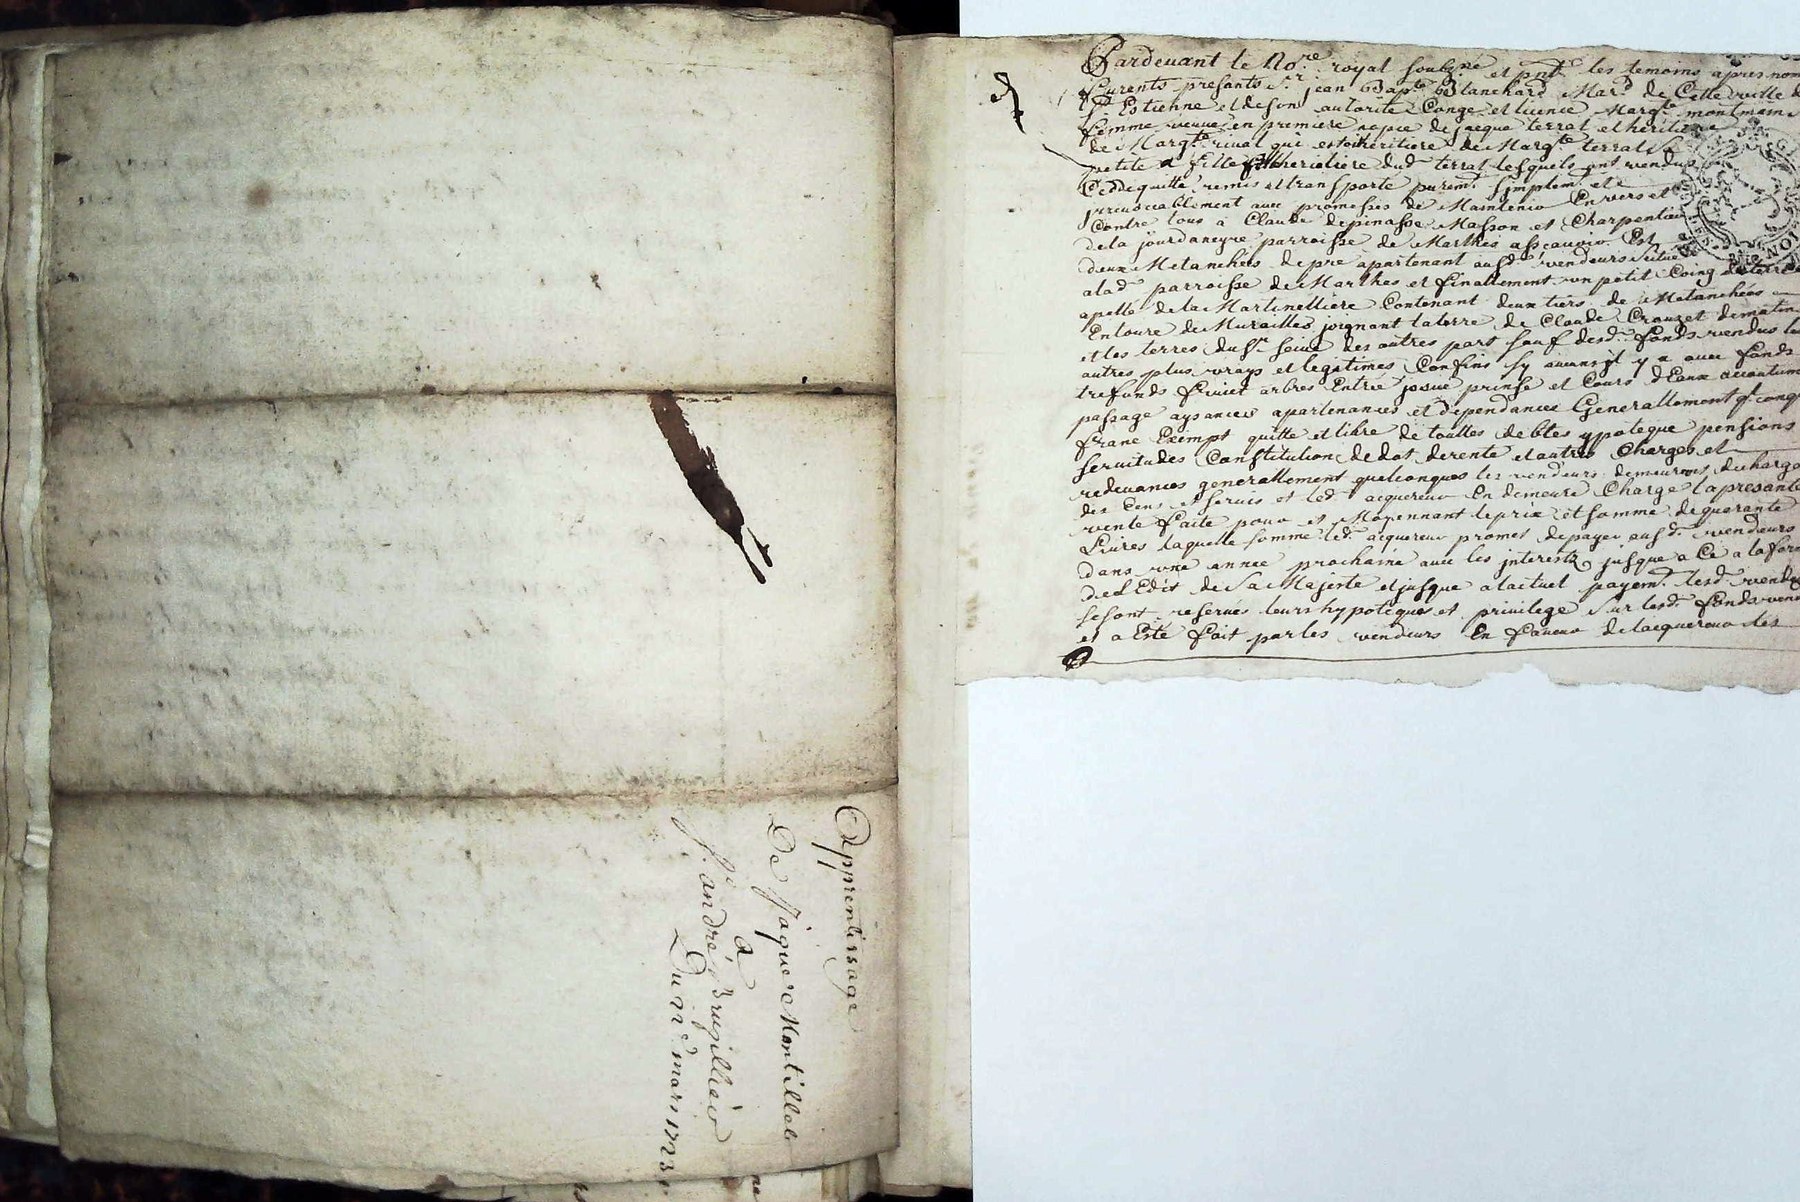 Apprentissage
De Jaque Montillet
a
Sr. andré
Du 22e mars 1723
Pardevant le Nore. royal soubzne et pnt. les temoins apres nom
furents presants Sr. jean Bapte Blanchard Mard. de Cette ville d
St Estienne et de son autorite Conge et licence Margte. montmain
femme veuve en premiere nopce de jacque terrat et heritiere
de Margte. rivat qui estoit heritiere de Margte. terrat
petite fille et heritiere dud. terrat lesquels ont vendus
Cedde quitte remis et transporte purem. simplem. et
irrevocablement avec promesses de Maintenir Envers et
Contre tous a Claude depinasse Masson et Charpentier
dela jourdaneyre parroisse de Marthes asscavoir Est
deux Metanchées de pre apartenant ausd. vendeurs situé
alad. parroisse de Marthes et finallement un petit Coing de terre
apellé de la Martinelliere Contenant deux tiers de Metanchées
Entoure de Murailles joignant la terre de Claude Crouzet de matin
et les terres du Sr. des autres part sauf desd. fonds vendus
autres plus vrays et legitimes Confins sy aucuns il y a avec fonds
trefonds fruict arbres Entrée jssue prinse et Cours d'Eaux accoutum
passage aysances apartenances et dependances Generallement qconq
franc Exempt quitte et libre de touttes debtes ypoteque pensions
servitudes Constitution de dot de rente et autres Charges et
redevances generallement quelconques les vendeurs demeurants decharge
des Cens et servis et led. acquereur En demeure Charge la presante
vente faite pour et Moyennant le prix et somme de quarante
Livres laquelle somme led. acquereur promet de payer ausd. vendeurs
dans une annee prochaine avec les interestz jusque a Ce a la for
de l'Edit de Sa Majesté et jusque a lactuel payem. lesd. vende
se sont reservés leurs hypoteques et privilege sur lesd. fonds vend
et a Esté fait par les vendeurs En faveur de lacquereur les